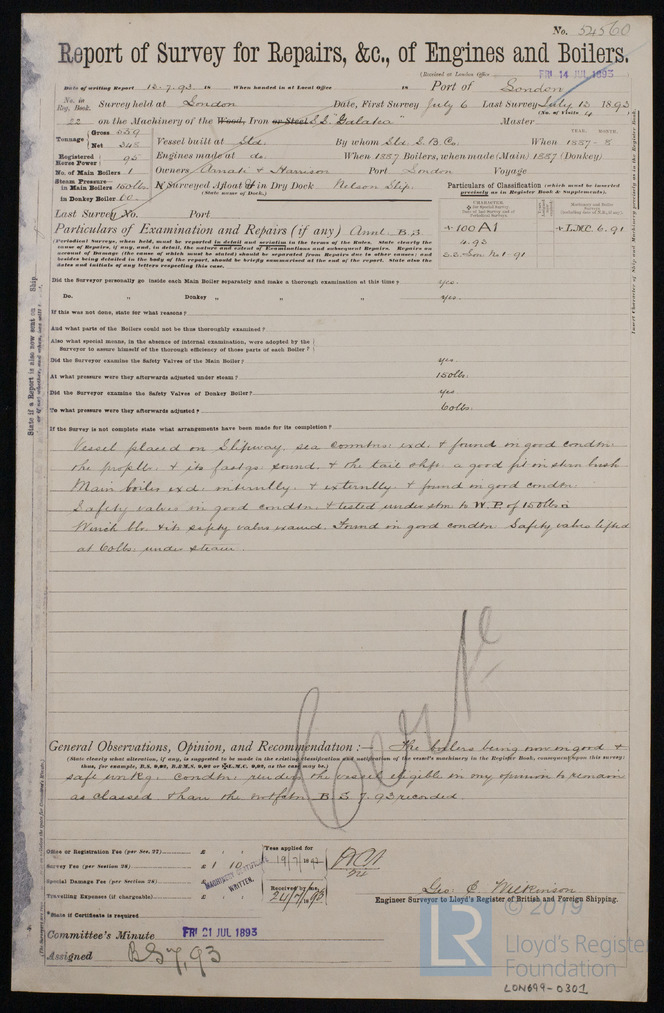 No. 54560
Report of Survey for Repairs, &c., of Engines and Boilers.
(Received at London Office FRI 14 JUL 1893
Date of writing Report 13-7-93 18 When handed in at Local Office 18 Port of London
No. in Reg. Book. Survey held at London Date, First Survey July 6 Last Survey July 13 1893
(No. of Visits 4)
22 on the Machinery of the Wood, Iron or Steel S.S. "Galatea" Master
Tonnage Gross 559 Vessel built at Std. By whom Std. S.B.Co. When 1887-8
YEAR. MONTH.
Net 345
Registered Horse Power 95 Engines made at do. When 1887 Boilers, when made (Main) 1887 (Donkey)
No. of Main Boilers 1 Owners & Harrison Port London Voyage
Steam Pressure in Main Boilers 150lbs If Surveyed Afloat or in Dry Dock Nelson Slip.
(State name of Dock.)
in Donkey Boiler 60
Particulars of Classification (which must be inserted precisely as in Register Book & Supplements).
Last Survey No. Port
Particulars of Examination and Repairs (if any) Annl. B.S.
+100 A1 + L.M.C. 6.91
4.93
S.S. Lon No 1-91
(Periodical Surveys, when held, must be reported in detail and seriatim in the terms of the Rules. State clearly the
cause of Repairs, if any, and, in detail, the nature and extent of Examinations and subsequent Repairs. Repairs on
account of Damage (the cause of which must be stated) should be separated from Repairs due to other causes; and
besides being detailed in the body of the report, should be briefly summarised at the end of the report. State also the
dates and initials of any letters respecting this case.
Did the Surveyor personally go inside each Main Boiler separately and make a thorough examination at this time? yes.
Do. " Donkey " " " yes.
If this was not done, state for what reasons?
And what parts of the Boilers could not be thus thoroughly examined?
Also what special means, in the absence of internal examination, were adopted by the
Surveyor to assure himself of the thorough efficiency of those parts of each Boiler?
Did the Surveyor examine the Safety Valves of the Main Boiler? yes.
At what pressure were they afterwards adjusted under steam? 150lbs.
Did the Surveyor examine the Safety Valves of Donkey Boiler? yes
To what pressure were they afterwards adjusted? 60lbs.
If the Survey is not complete state what arrangements have been made for its completion?
Vessel placed on Slipway, sea connctns: exd: & found in good condtn:
the proplb: & its fastgs sound, & the tail shft: a good fit in stern bush
Main boiler exd: internlly: & externlly: & found in good condtn:
Safety valves in good condtn: & tested under stm to W.P. of 150lbs
Winch blr & its safety valve examd. Found in good condtn Safety valve lifted
at 60lbs: under steam.
General Observations, Opinion, and Recommendation:— The boilers being now in good &
(State clearly what alteration, if any, is suggested to be made in the existing classification and notification of the vessel's machinery in the Register Book, consequent upon this survey;
thus, for example, B.S. 9,92, B.&M.S. 9,92 or +L.M.C. 9,92, as the case may be.)
safe workg. condtn: renders the vessel eligible in my opinion to remain
as classed & have the notfctn B.S. 7.93 recorded.
Office or Registration Fee (per Sec. 27) £
Survey Fee (per Section 28) £ 1 10
Special Damage Fee (per Section 28) £
Travelling Expenses (if chargeable) £
Fees applied for
19/7/1893
Received by me,
24/7/1893
WRITTEN.
Geo. E. Wilkinson
Engineer Surveyor to Lloyd's Register of British and Foreign Shipping.
*State if Certificate is required
Committee's Minute FRI 21 JUL 1893
Assigned BS 7,93
LR
© 2019
Lloyd's Register
Foundation
LON699-0301